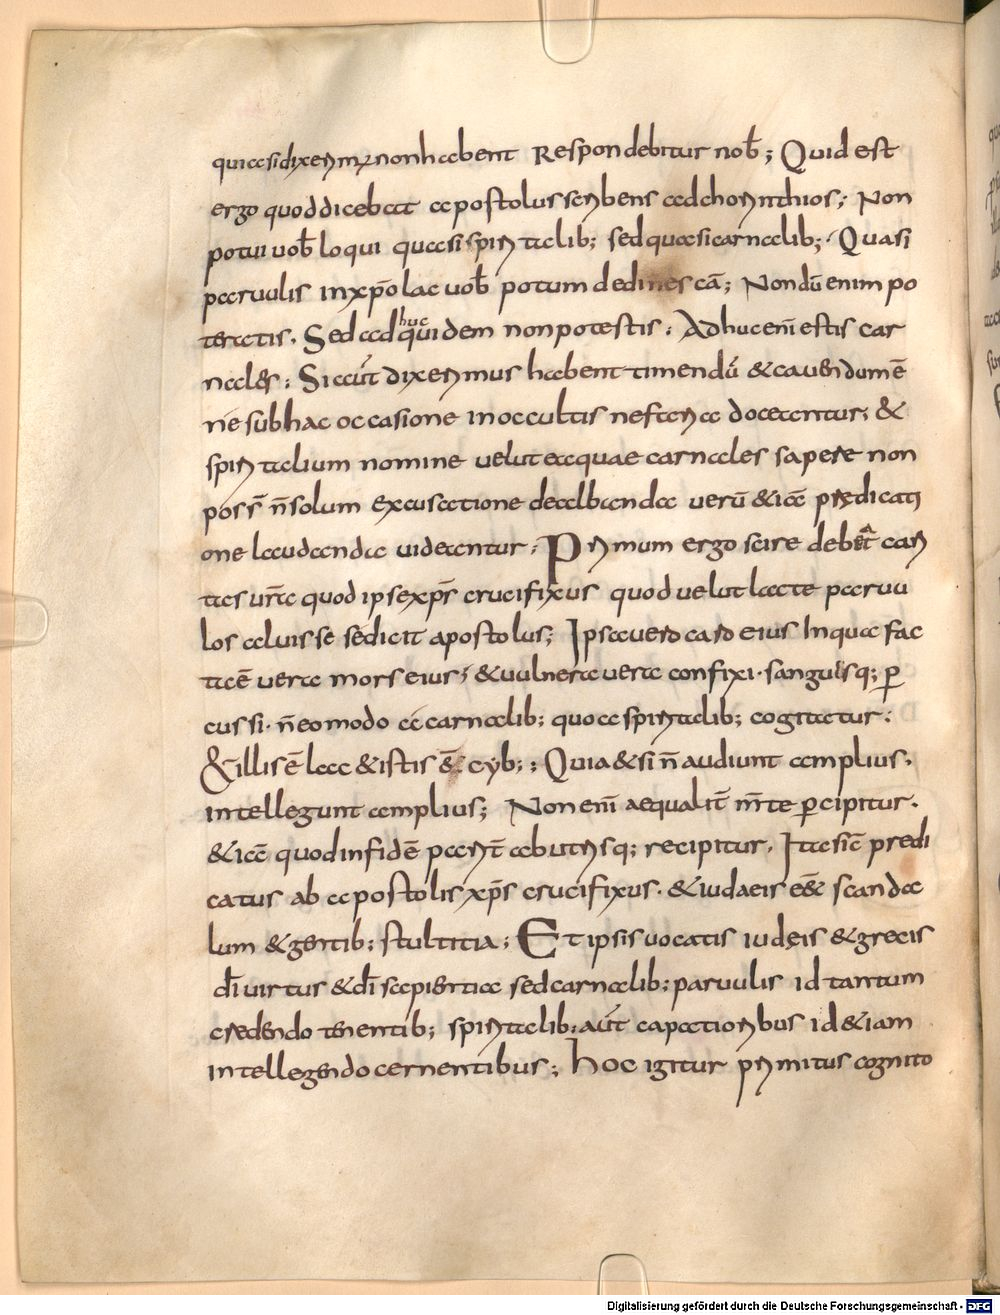 quia si dixerim' non habent Respondebitur nob̄; Quid est
ergo quod dicebat apostolus scribens ad chorinthios; Non
potui uob̄ loqui quasi spiritalib; sed quasi carnalib; Quasi
paruulis in xp̄o lac uob̄ potum dedi n escā; Nondū enim po
teratis. Sed ad huc quidem non potestis; Adhuc enī estis car
nales; Sic aūt dixerimus habent timendū &cauendum ē
ne sub hac occasione in occultis nefaria doceantur; &
spiritalium nomine uelut ea quae carnales sapere non
poss̄ n̄ solum excusatione dealbanda uerū &iā prędicati
one laudanda uideantur; Primum ergo scire debeāt carn
tas ur̄a quod ipse xp̄s crucifixus quod uelut lacte paruu
los aluisse se dicit apostolus; Ipsa uero caro eius In qua fac
ta ē uera mors eius; &uulnera uera confixi. sanguisq; p̱
cussi. n̄ eo modo a carnalib; quo a spiritalib; cogitatur;
&illis ē lac &istis ē& cyb;; Quia &si n̄ audiunt amplius.
intellegunt amplius; Non enī aequalit̄ m̄te p̱cipitur.
&iā quod in fidē parit̄ ab utrisq; recipitur. Ita sic predi
catus ab apostolis xp̄s crucifixus. &iudaeis ē& scanda
lum &gentib; stultitia; Et ipsis uocatis iudęis &grecis
dī uirtus &dī sapientia sed carnalib; paruulis id tantum
credendo tenentib; spiritalib; aūt capatioribus id &iam
intellegendo cernentibus; Hoc igitur primitus cognito
Digitalisierung gefördert durch die Deutsche Forschungsgemeinschaft - DFG